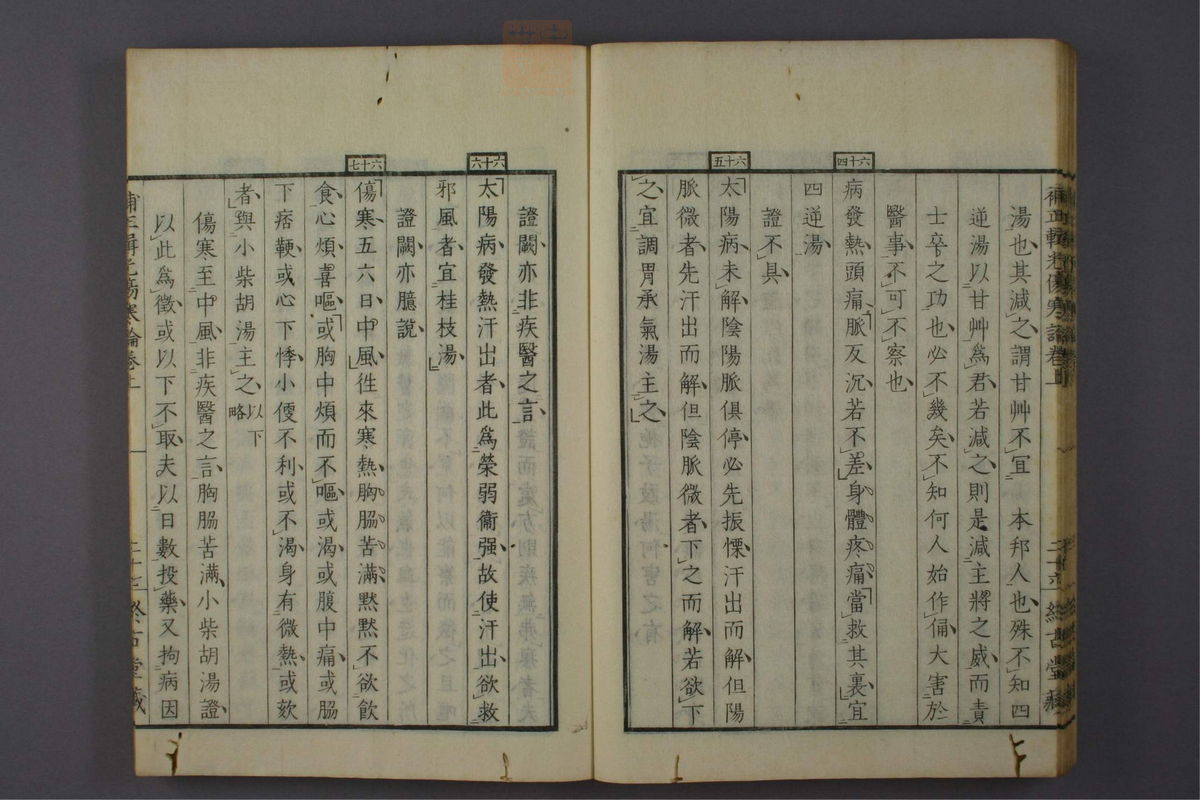 湯也其減之謂甘艸不宜 本邦人也殊不知四
逆湯以甘艸爲君若減之則是減主將之威而責
士卒之功也必不幾矣不知何人始作俑大害於
醫事不可不察也
六十四
病發熱頭痛脈反沉若不差身體疼痛當救其裏宜
四逆湯
證不具
六十五
太陽病未解陰陽脈俱停必先振慄汗出而解但陽
脈微者先汗出而解但陰脈微者下之而解若欲下
之宜調胃承氣湯主之
證闕亦非疾醫之言
六十六
太陽病發熱汗出者此爲榮弱衞强故使汗出欲救
邪風者宜桂枝湯
證闕亦臆說
六十七
傷寒五六日中風徃來寒熱胸脇苦滿默默不欲飮
食心煩喜嘔或胸中煩而不嘔或渴或腹中痛或脇
下痞鞕或心下悸小便不利或不渴身有微熱或欬
者與小柴胡湯主之以下略
傷寒至中風非疾醫之言胸脇苦滿小柴胡湯證
以此爲徵或以下不取夫以日數投藥又拘病因